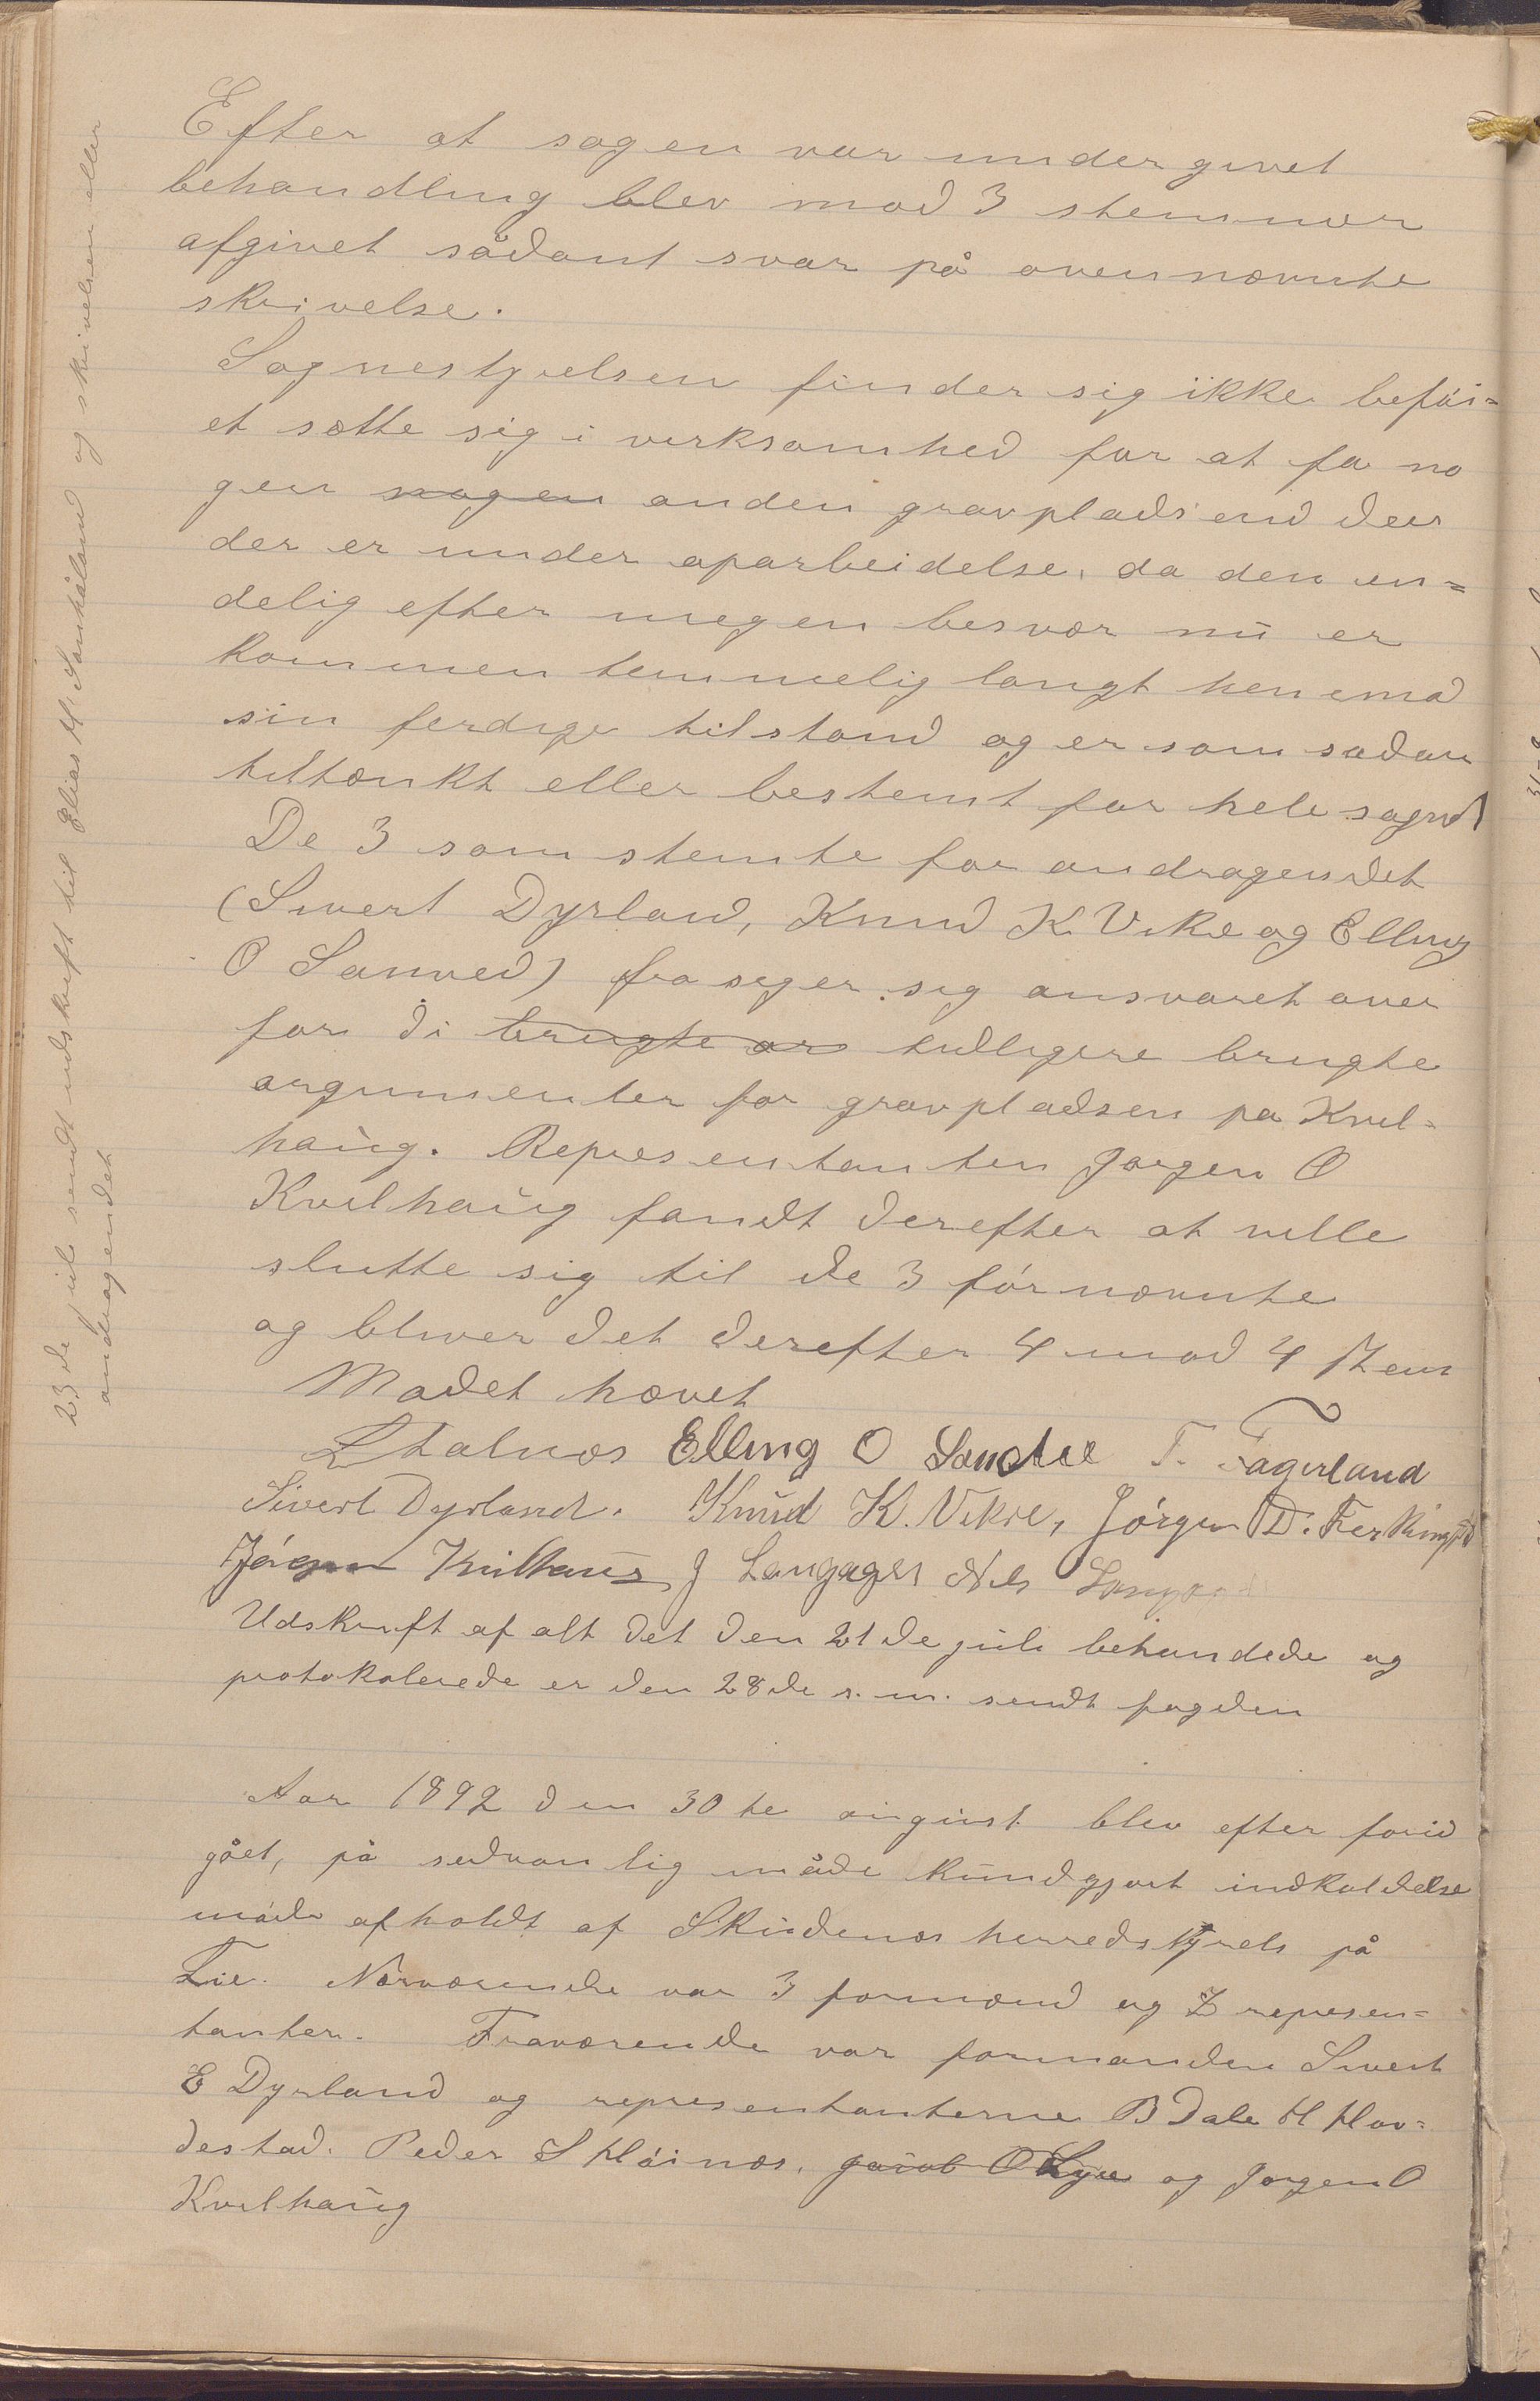 Efter at sagen var undergivet
behandling blev mod 3 stemmer
afgivet sådant svar på ovennævnte
skrivelse.
Sognestyrelsen finder sig ikke beføi=
et sætte sig i verksomhed for at fa no
gen nogen anden gravplads end den
der er under oparbeidelse, da den en=
delig efter megen besvær nu er
kommen temmelig langt henemod
sin ferdige tilstand og er som sadan
tiltænkt eller bestemt for hele sognet
De 3 som stemte for andragendet
(Sivert Dyrland, Knud K. Vike og Elling
O Sanved) fra siger sig ansvaret over
for di brugte ar tidligere brugte
argumenter for gravpladsen pa Kvil=
haug. Representanten Jørgen O
Kvilhaug fandt derefter at ville
slutte sig til de 3 førnævnte
og bliver det derefter 4 mod 4 stem
Mødet hævet
Elling O T. Fagerland
Sivert Dyrland. Knud K. Vikre, Jørgen D. Ferkingstd
Jørgen Kvilhaug J Langager Nils
Udskrift af alt det den 21de juli behandede og
protokolerede er den 28de s. m. sendt fogden
Aar 1892 den 30te august blev efter forid
gået, på sedvanlig måde kundgjort indkaldelse
møde afholdt af Skudenæs herredstyrels på
Lie. Nærværende var 3 formænd og 7 represen=
tanter. Fraværende var formanden Sivert
E Dyrland og representanterne B Dale H Hov=
destad. Peder S Høinæs. Jacob O Lye og Jørgen O
Kvilhaug
23de juli sendt udskrift til Elias H. Sandhåland og skrivelsen eller
andragendet